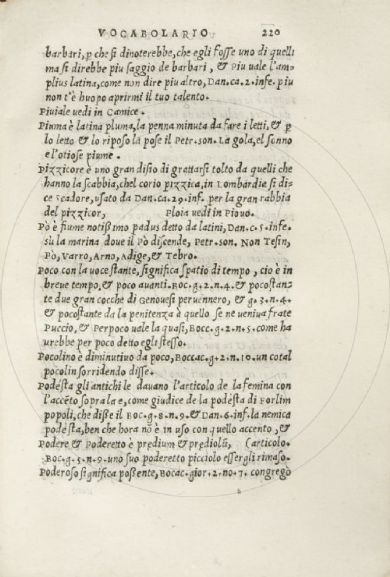 VOCABOLARIO 220
barbari, ꝑ che si dinoterebbe, che egli fosse uno di quelli
ma si direbbe piu saggio de barbari, & Piu uale l'am-
plius latina, come non dire piu altro, Dan.ca.2.infe. piu
non t'è huopo aprirmi il tuo talento.
Piuiale uedi in Camice.
Piuma è latina pluma, la penna minuta da fare i letti, & ꝑ
lo letto & lo riposo la pose il Petr.son. La gola, el sonno
e l'otiose piume.
Pizzicore è uno gran disio di grattarsi tolto da quelli che
hanno la scabbia, chel corio pizzica, in Lombardie si di-
ce Scadore, usato da Dan.ca.29.inf. per la gran rabbia
del pizzicor, Ploia uedi in Piouo.
Pò è fiume notißimo padus detto da latini, Dan.c.5.infe.
sù la marina doue il Pò discende, Petr.son. Non Tesin,
Pò, Varro, Arno, Adige, & Tebro.
Poco con la uoce stante, significa spatio di tempo, cio è in
breue tempo, & poco auanti. Boc.g.2.n.4. & pocostan-
te due gran cocche di Genouesi peruennero, & g.3.n.4.
& pocostante da la penitenza è quello se ne ueniua frate
Puccio, & Perpoco uale la quasi, Bocc.g.2.n.5. come ha
urebbe per poco detto egli stesso.
Pocolino è diminutiuo da poco, Boccac.g.2.n.10. un cotal
pocolin sorridendo disse.
Podesta gli antichi le dauano l'articolo de la femina con
l'accẽto sopra la e, come giudice de la podèsta di Forlim
popoli, che diße il Boc.g.8.n.9. & Dan.6.inf. la nemica
podèsta, ben che hora nõ è in uso con quello accento, &
Podere & Poderetto è prędium & prędiolũ, (articolo.
Boc.g.5.n.9. uno suo poderetto picciolo essergli rimaso.
Poderoso significa poßente, Bocac.gior.2.no.7. congregò